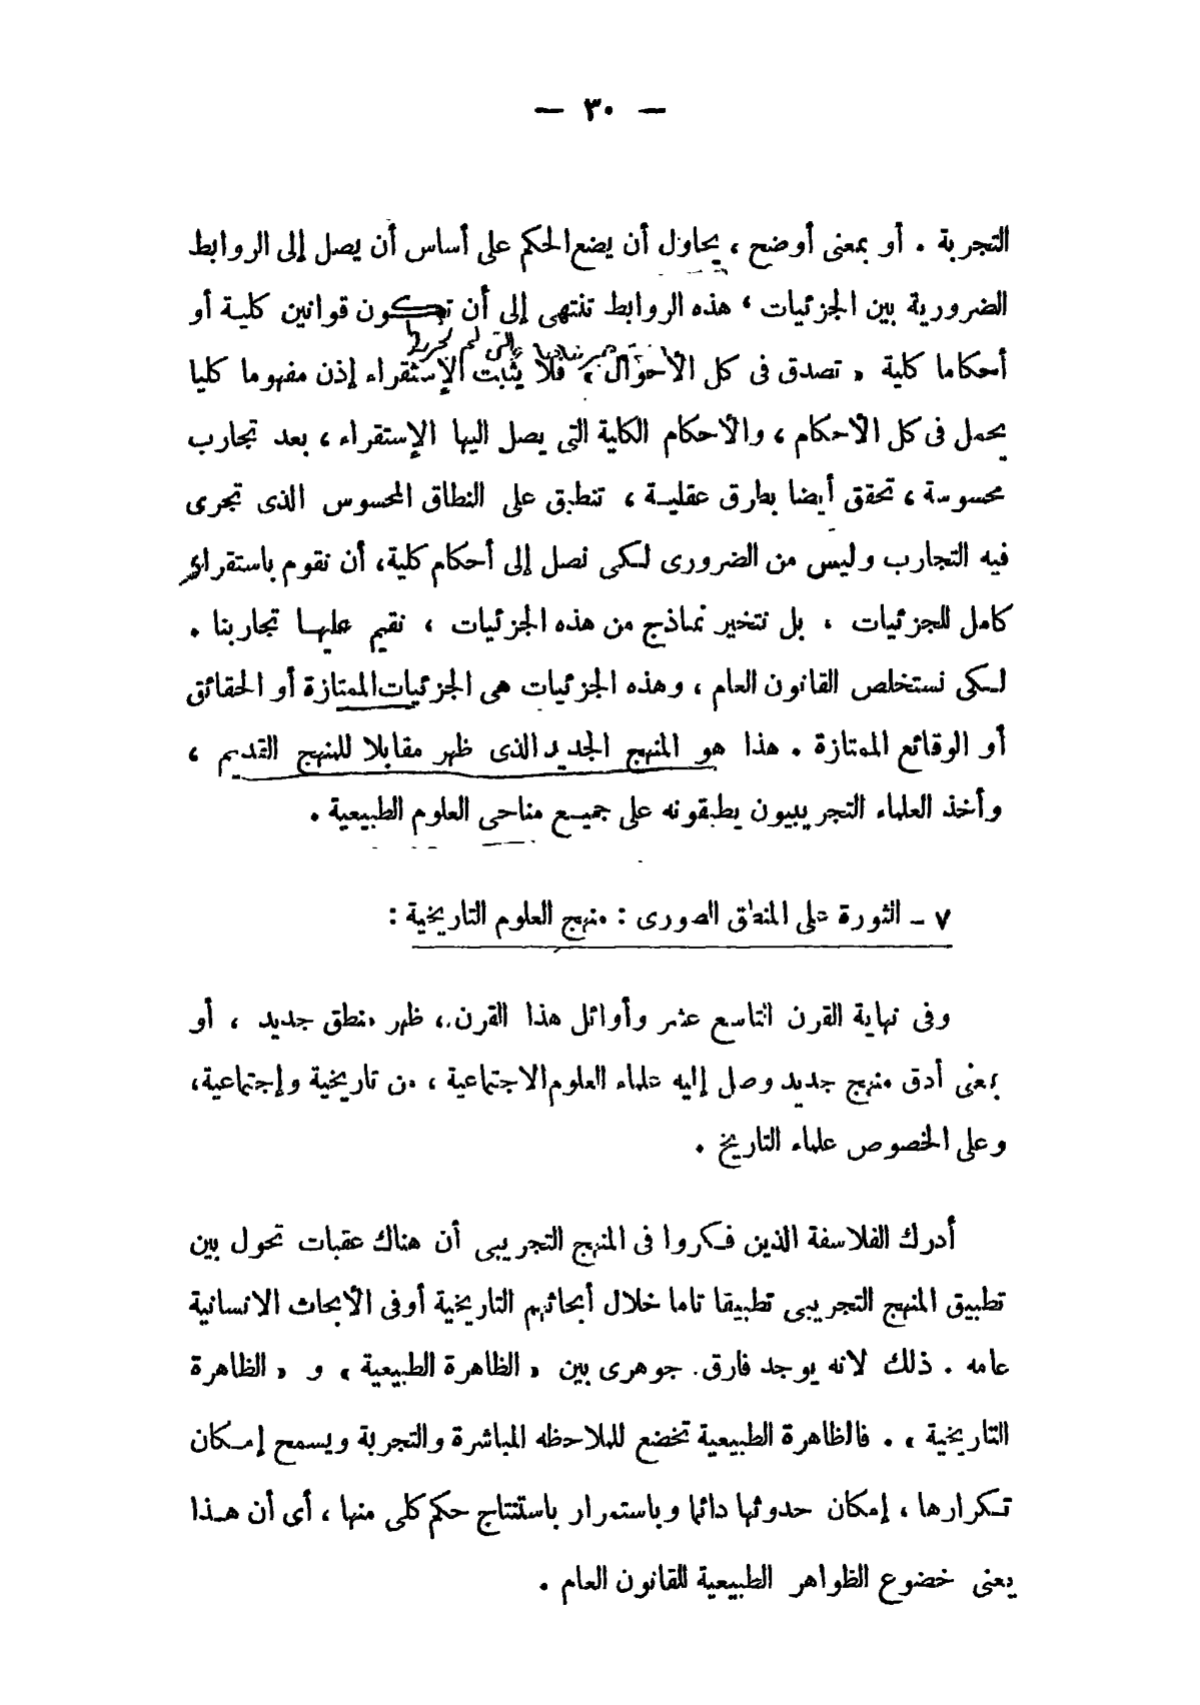 — ٣٠ —
التجربة . أو بمعنى أوضح ، يحاول أن يضع الحكم على أساس أن يصل إلى الروابط
الضرورية بين الجزئيات ، هذه الروابط تنتهى إلى أن تكون قوانين كلية أو
أحكاما كلية « تصدق فى كل الأحوال » فلا يثبت الإستقراء إذن مفهوما كليا
يحمل فى كل الأحكام ، والأحكام الكلية التى يصل اليها الإستقراء ، بعد تجارب
محسوسة ، تحقق أيضا بطرق عقلية ، تنطبق على النطاق المحسوس الذى تجرى
فيه التجارب وليس من الضرورى لكى نصل إلى أحكام كلية، أن نقوم باستقراء
كامل للجزئيات ، بل نتخير نماذج من هذه الجزئيات ، نقيم عليها تجاربنا .
لكى نستخلص القانون العام ، وهذه الجزئيات هى الجزئيات الممتازة أو الحقائق
أو الوقائع الممتازة . هذا هو المنهج الجديد الذى ظهر مقابلا للمنهج القديم ،
وأخذ العلماء التجريبيون يطبقونه على جميع مناحى العلوم الطبيعية .
٧ – الثورة على المنطق الصورى : منهج العلوم التاريخية :
وفى نهاية القرن التاسع عشر وأوائل هذا القرن ، ظهر منطق جديد ، أو
بمعنى أدق منهج جديد وصل إليه علماء العلوم الاجتماعية ، من تاريخية وإجتماعية،
وعلى الخصوص علماء التاريخ .
أدرك الفلاسفة الذين فكروا فى المنهج التجريبى أن هناك عقبات تحول بين
تطبيق المنهج التجريبى تطبيقا تاما خلال أبحاثهم التاريخية أوفى الأبحاث الانسانية
عامه . ذلك لانه يوجد فارق جوهرى بين « الظاهرة الطبيعية » و « الظاهرة
التاريخية » . فالظاهرة الطبيعية تخضع للملاحظه المباشرة والتجربة ويسمح إمكان
تكرارها ، إمكان حدوثها دائما وباستمرار باستنتاج حكم كلى منها ، أى أن هذا
يعنى خضوع الظواهر الطبيعية للقانون العام .